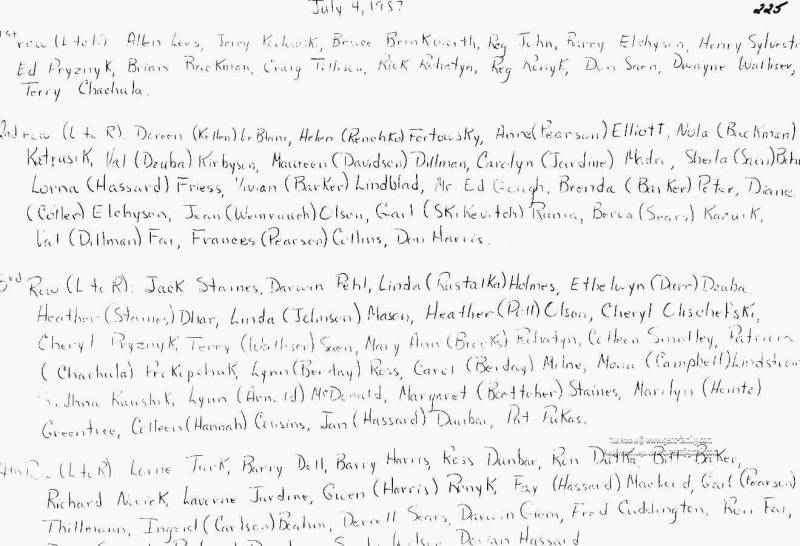 July 4, 1987 225
1st row (L to R) Allen Lees, Jerry Kozlowski, Bruce Brinkworth, Reg John, Barry Elchyson, Henry Sylvestr
Ed Pryznyk, Brian Backman, Craig Tillison, Rick Rohatyn, Reg Ronyk, Don Saen, Dwayne Walhser,
Terry Chachula.
2nd row (L to R). Doreen (Kellen) LeBlanc, Helen (Renohka) Fortowsky, Anne (Pearson) Elliott, Nola (Backman)
Katrusik, Val (Dzuba) Kirbyson, Maureen (Davidson) Dillman, Carolyn (Jardine) Madra, Sheila (Saen)
Lorna (Hassard) Friess, Vivian (Barker) Lindblad, Mr. Ed Gough, Brenda (Barker) Peter, Diane
(Coller) Elchyson, Jean (Weinrauch) Olson, Gail (Skikevitch) Rania, Berva (Sears) Kazuik,
Val (Dillman) Far, Frances (Pearson) Collins, Don Harris.
3rd Row (L to R): Jack Staines, Darwin Pehl, Linda (Rustalka) Holmes, Ethelwyn (Durr) Dzuba,
Heather (Staines) Dhar, Linda (Johnson) Mason, Heather (Pell) Olson, Cheryl Olischefski,
Cheryl Pryznyk, Terry (Walhser) Saen, Mary Ann (Brooks) Rohatyn, Colleen Smalley, Patricia
(Chachula) Prokopchuk, Lynn (Berday) Ross, Carol (Berday) Milne, Mona (Campbell) Lindstrom
Kaushik, Lynn (Arnold) McDonald, Margaret (Boettcher) Staines, Marilyn (Heintz)
Greentree, Colleen (Hannah) Cousins, Jan (Hassard) Dunbar, Pat Pukas.
4th Row (L to R). Lorne Turk, Barry Dell, Barry Harris, Ross Dunbar, Ron Dutka, Bill Baker,
Richard Novick, Laverne Jardine, Gwen (Harris) Ronyk, Fay (Hassard) MacLeod, Gail (Pearson)
Thillmann, Ingrid (Carlson) Beahm, Derrell Sears, Darwin Giem, Fred Cuddington, Ron Far,
Dorian Hassard